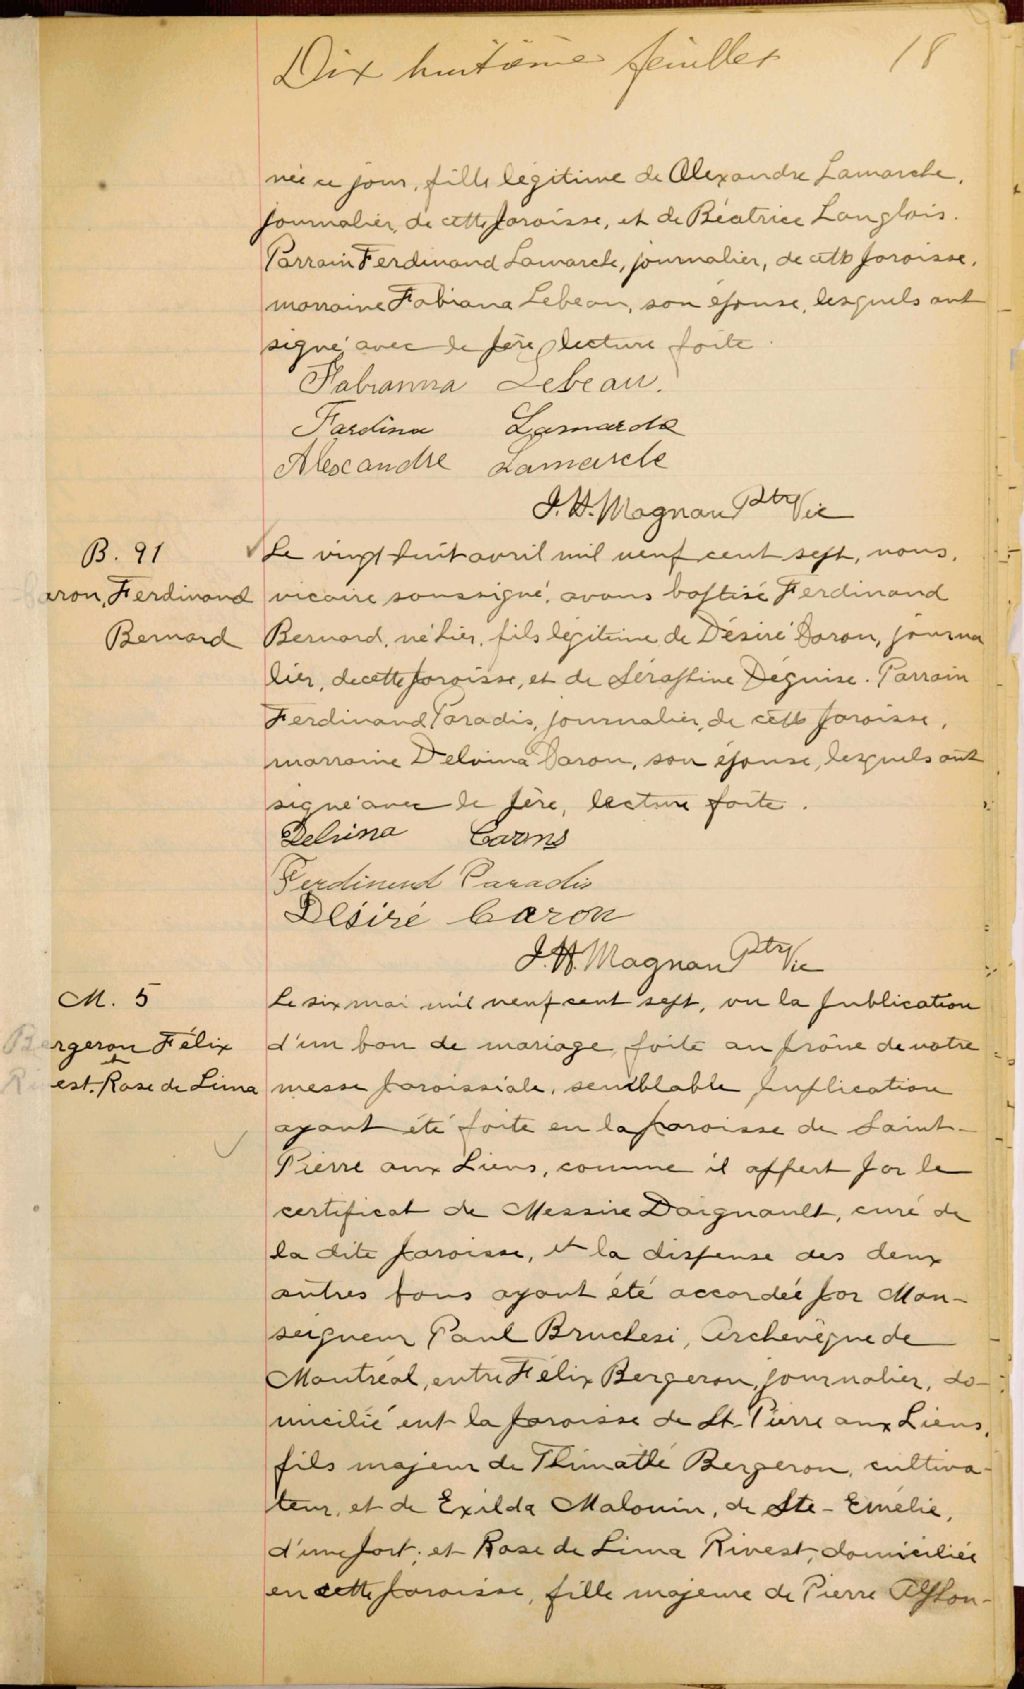 Dix huitième feuillet 18
née ce jour, fille légitime de Alexandre Lamarche,
journalier, de cette paroisse, et de Béatrice Langlois.
Parrain Ferdinand Lamarche, journalier, de cette paroisse,
marraine Fabiana Lebeau, son épouse, lesquels ont
signé avec le père, lecture faite.
Fabianna Lebeau.
Fardina Lamarche
Alexandre Lamarche
J. H. Magnan Ptre Vic
B. 91
aron, Ferdinand
Bernard
Le vingt huit avril mil neuf cent sept, nous,
vicaire soussigné, avons baptisé Ferdinand
Bernard, né hier, fils légitime de Désiré Caron, journa
lier, de cette paroisse, et de Séraphine Déguise. Parrain
Ferdinand Paradis, journalier, de cette paroisse,
marraine Delvina Caron, son épouse, lesquels ont
signé avec le père, lecture faite.
Delvina
Ferdinend Paradis
Désiré Caron
J. H. Magnan Ptre Vic
M. 5
Bergeron Félix
et
Rivest. Rose de Lima
Le six mai mil neuf cent sept, vu la publication
d'un ban de mariage, faite au prône de notre
messe paroissiale, semblable publication
ayant été faite en la paroisse de Saint-
Pierre aux Liens, comme il appert par le
certificat de Messire Daignault, curé de
la dite paroisse, et la dispense des deux
autres bans ayant été accordée par Mon-
seigneur Paul Bruchesi, Archevêque de
Montréal, entre Félix Bergeron, journalier, do-
micilié ent la paroisse de St-Pierre aux Liens,
fils majeur de Thimathé Bergeron, cultiva-
teur, et de Exilda Malouin, de Ste-Emélie,
d'une part; et Rose de Lima Rivest, domiciliée
en cette paroisse, fille majeure de Pierre Alphon-